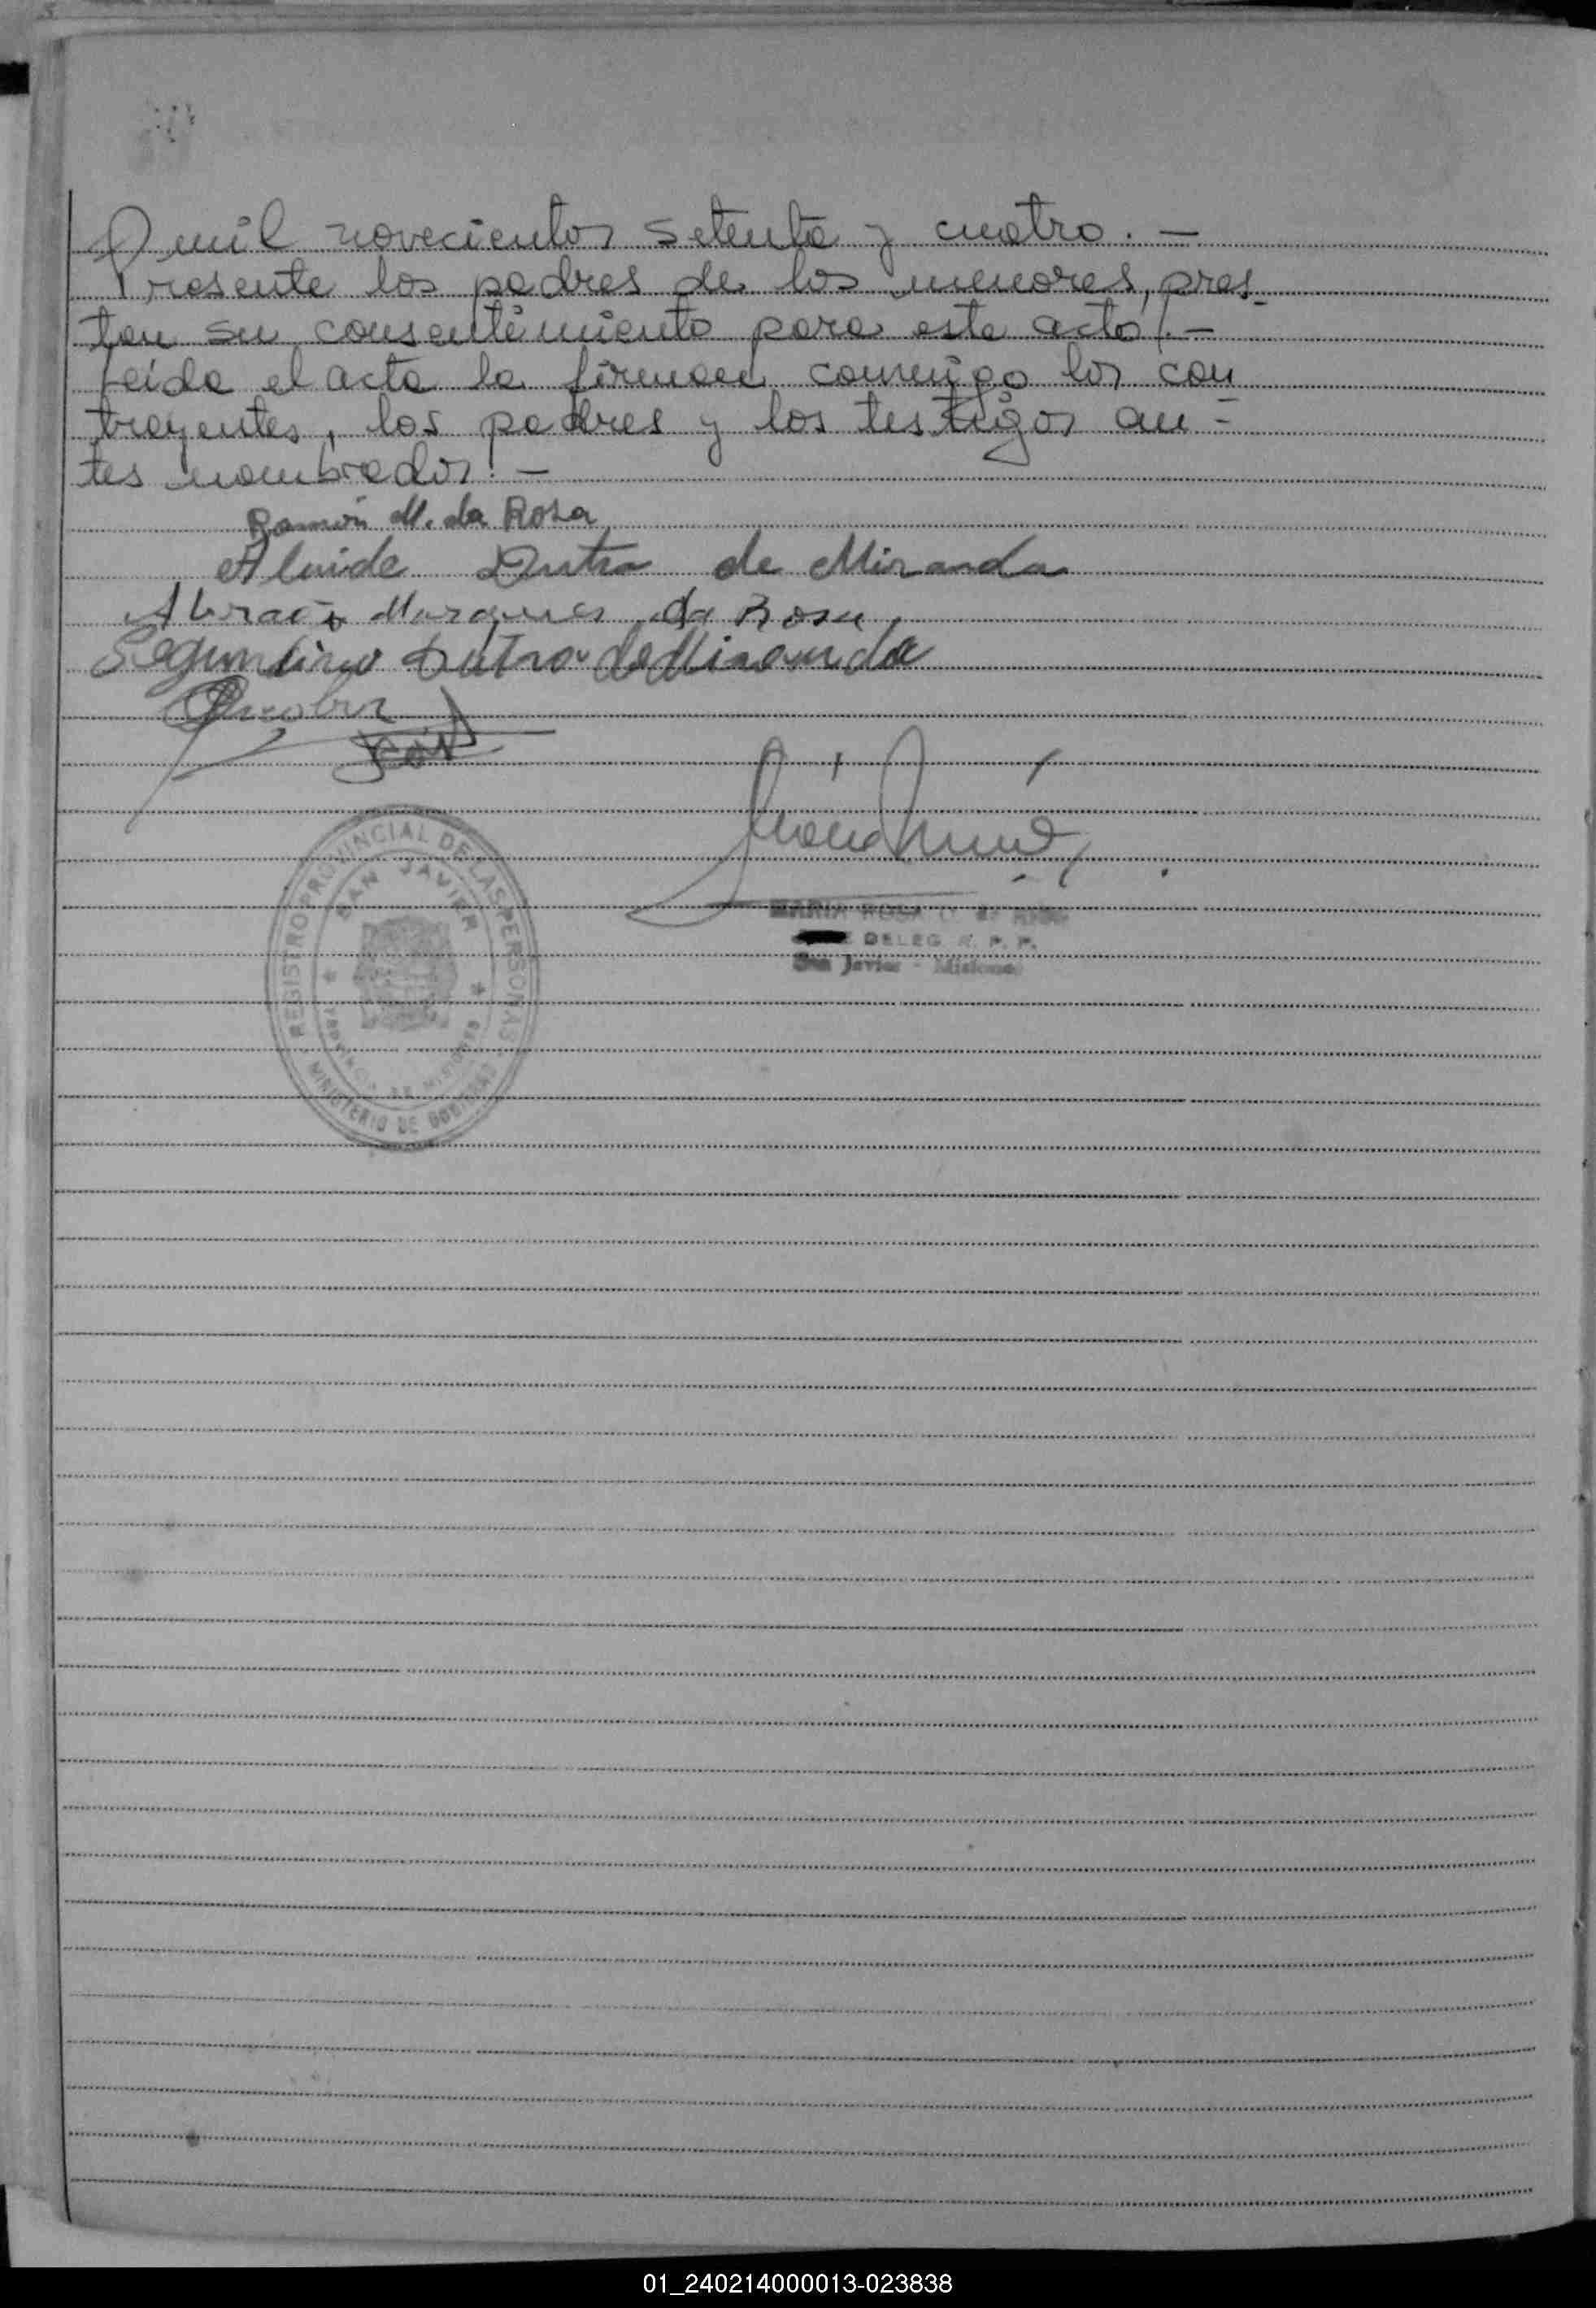 mil novecientos setenta y cuatro. —
Presente los padres de los menores, pres-
tan su consentimiento para este acto. —
Leída el acta la firman conmigo los con
trayentes, los padres y los testigos an-
tes nombrados. —
Ramón M. da Rosa
Alaide Dutra de Miranda
Marques da Rosa
Segundino Dutra de Miranda
REGISTRO PROVINCIAL DE LAS PERSONAS
SAN JAVIER
PROVINCIA DE MISIONES
MINISTERIO DE GOBIERNO
MARIA ROSA
DELEG. R. P. P.
San Javier - Misiones
01_240214000013-023838